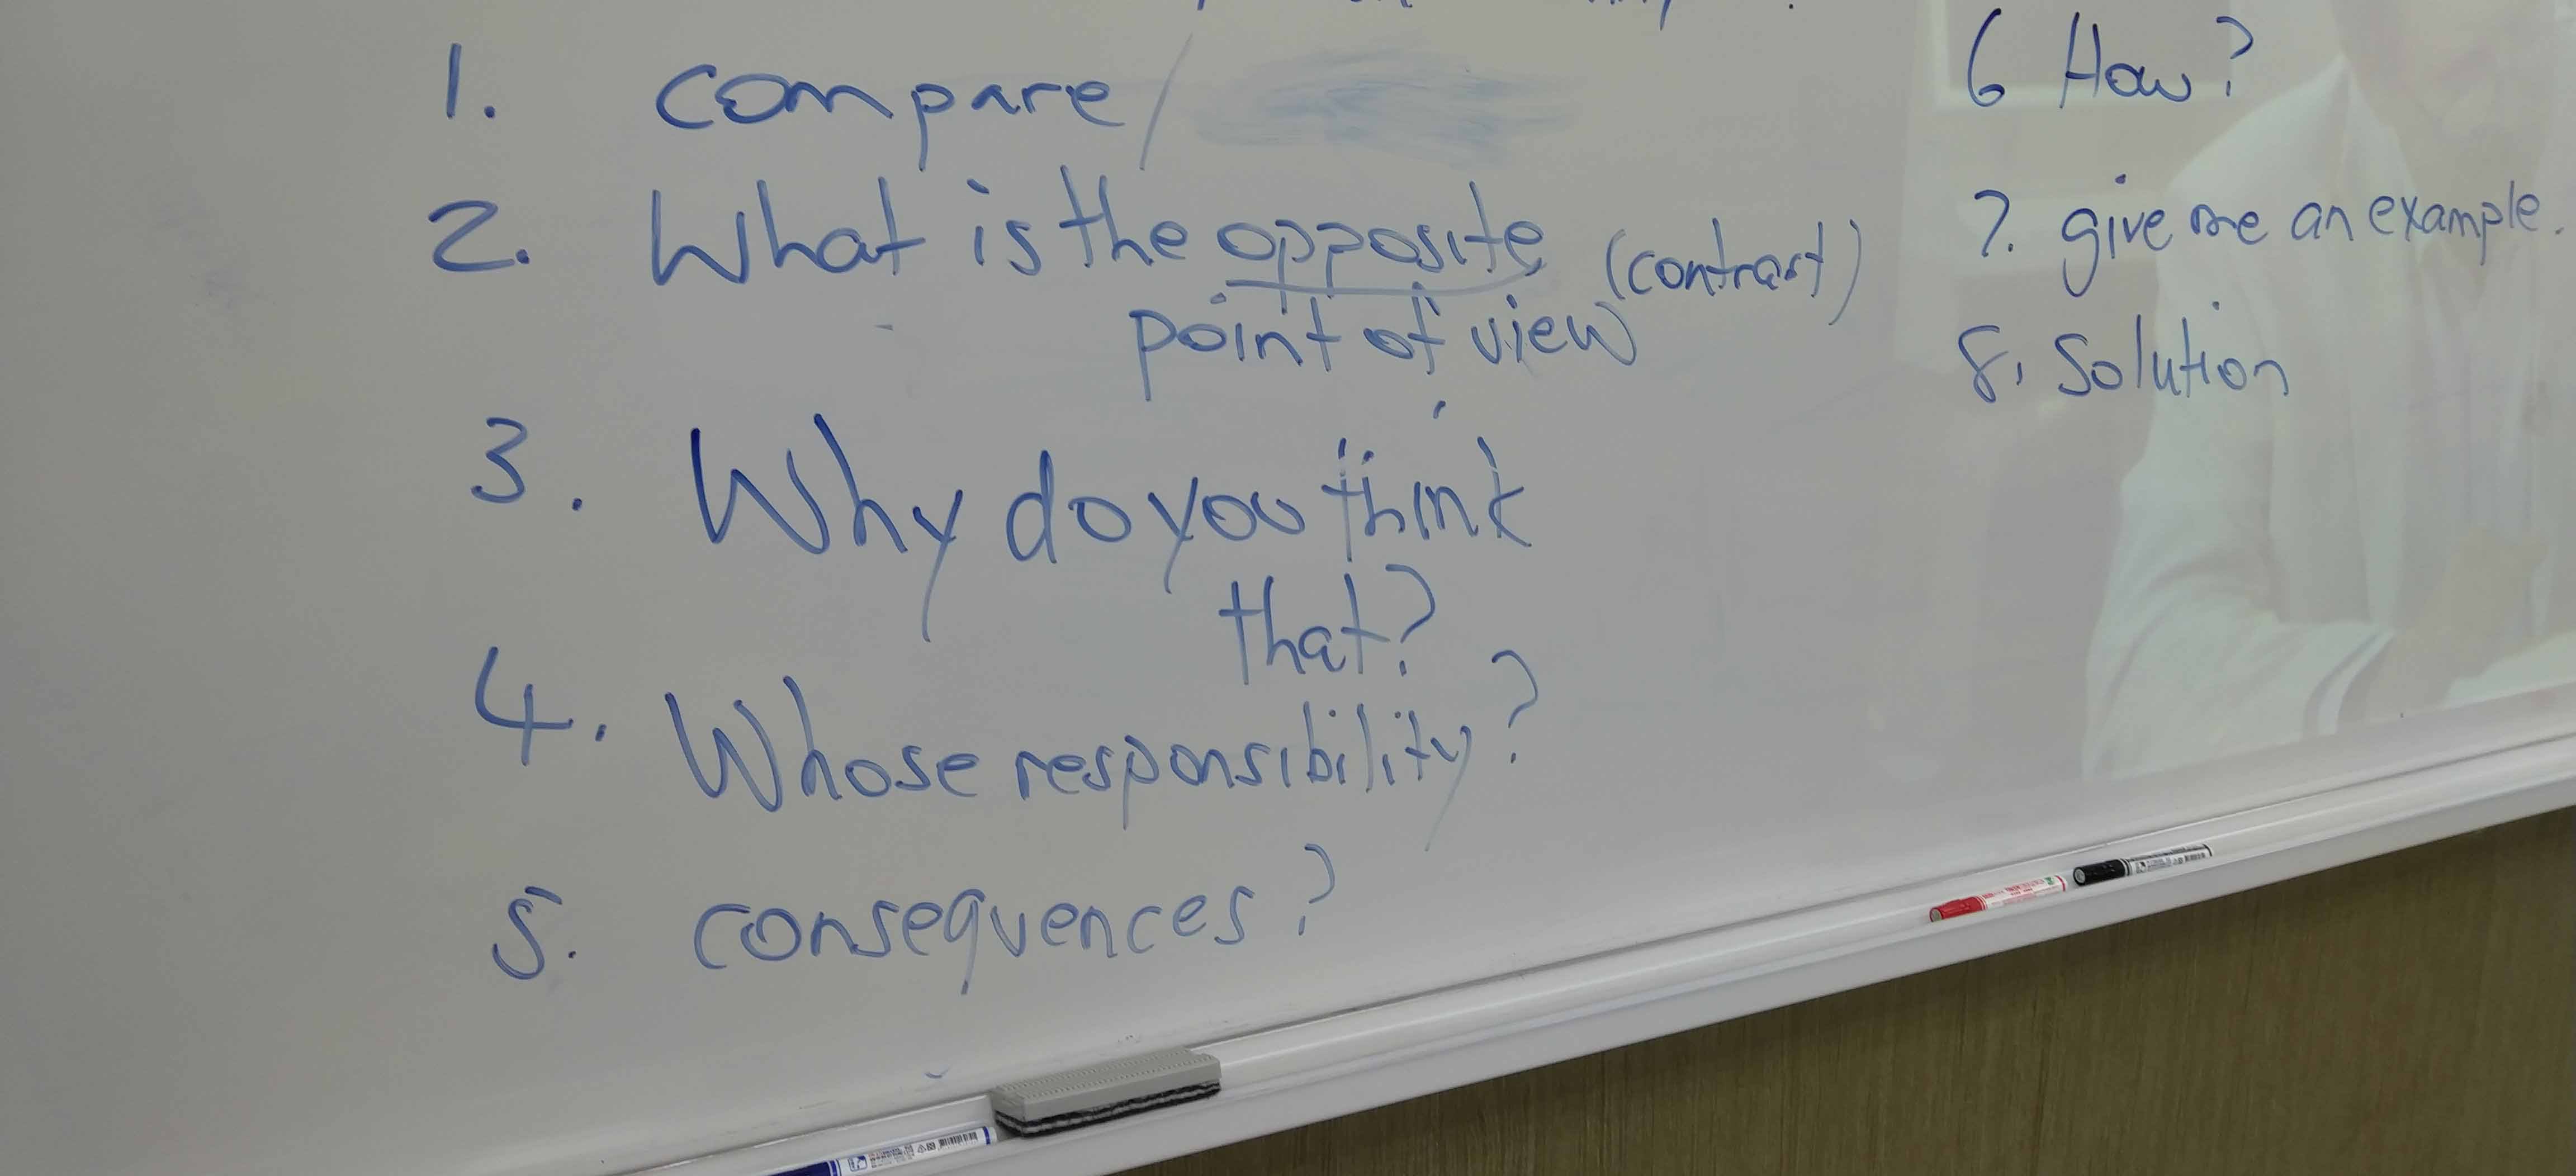 1. compare/
2. What is the opposite (contrast)
point of view
3. Why do you think
that?
4. Whose responsibility?
5. consequences?
6 How?
7. give me an example.
8. Solution